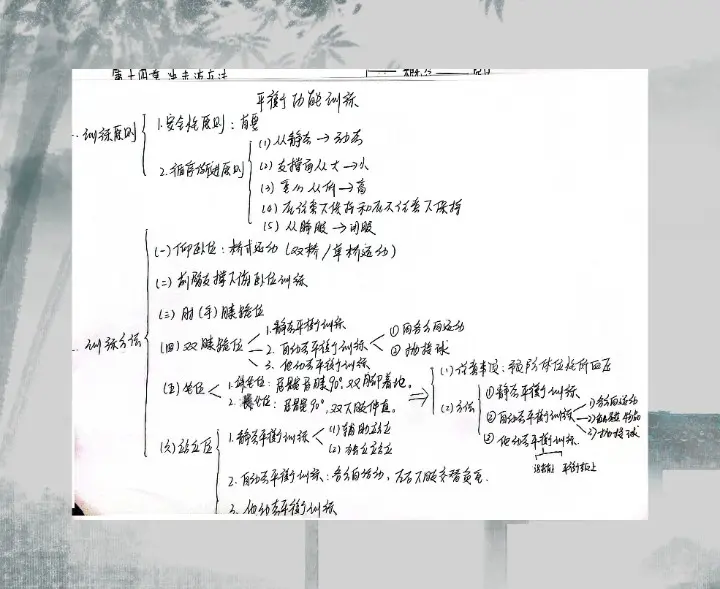 平衡功能训练
一. 训练原则
1. 安全性原则：首要
2. 循序渐进原则
(1) 从静态→动态
(2) 支撑面从大→小
(3) 重心从低→高
(4) 在注意下保持和在不注意下保持
(5) 从睁眼→闭眼
二. 训练方法
(一) 仰卧位：桥式运动 (双桥/单桥运动)
(二) 前臂支撑下俯卧位训练
(三) 肘(手)膝跪位
(四) 双膝跪位
1. 静态平衡训练
2. 自动态平衡训练
① 向各方向运动
② 抛接球
3. 他动态平衡训练
(五) 坐位
1. 端坐位：屈髋屈膝90°，双脚着地。
2. 长坐位：屈髋90°，双下肢伸直。
(1) 注意事项：预防体位性低血压
(2) 方法
① 静态平衡训练
② 自动态平衡训练
1) 各方向运动
3) 抛接球
③ 他动态平衡训练
平衡板上
(六) 站立位
1. 静态平衡训练
(1) 辅助站立
(2) 独立站立
2. 自动态平衡训练：各方向活动，左右下肢交替负重。
3. 他动态平衡训练